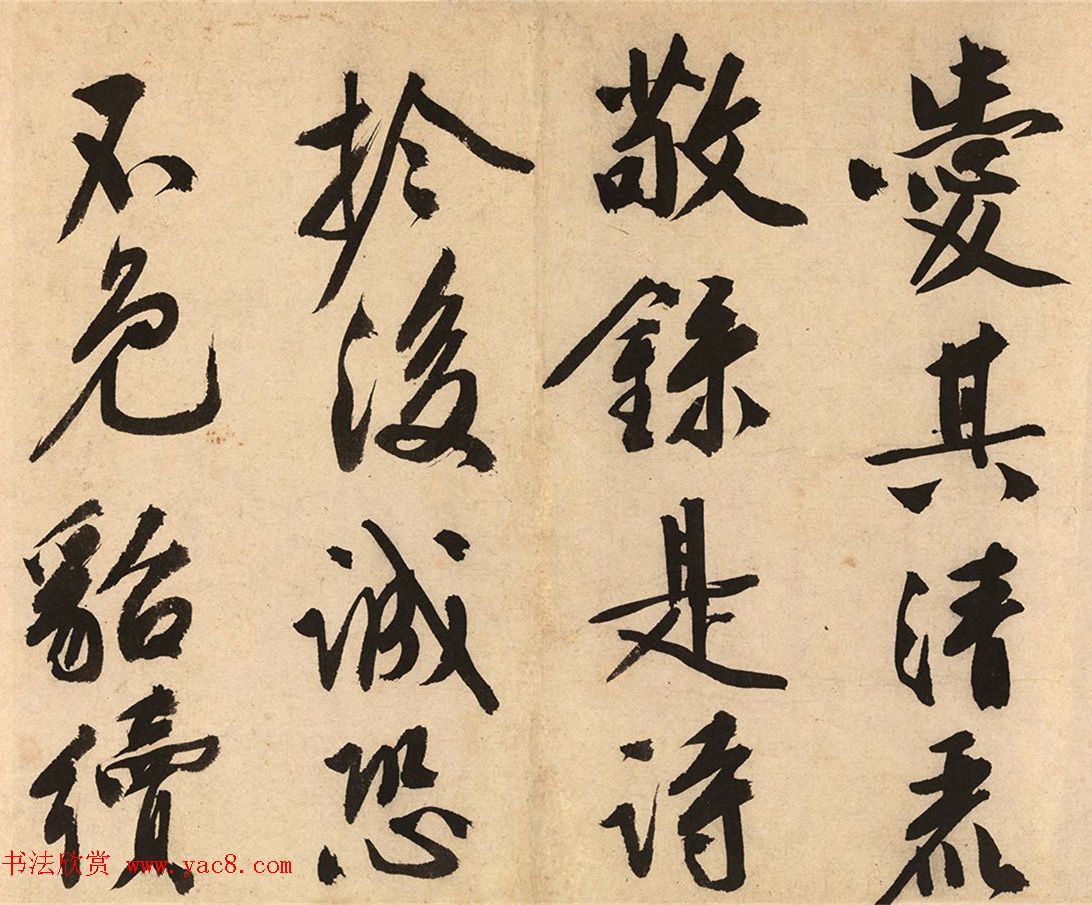 愛其清麗
敬錄是詩
於後誠恐
不免貂續
书法欣赏 www.yac8.com